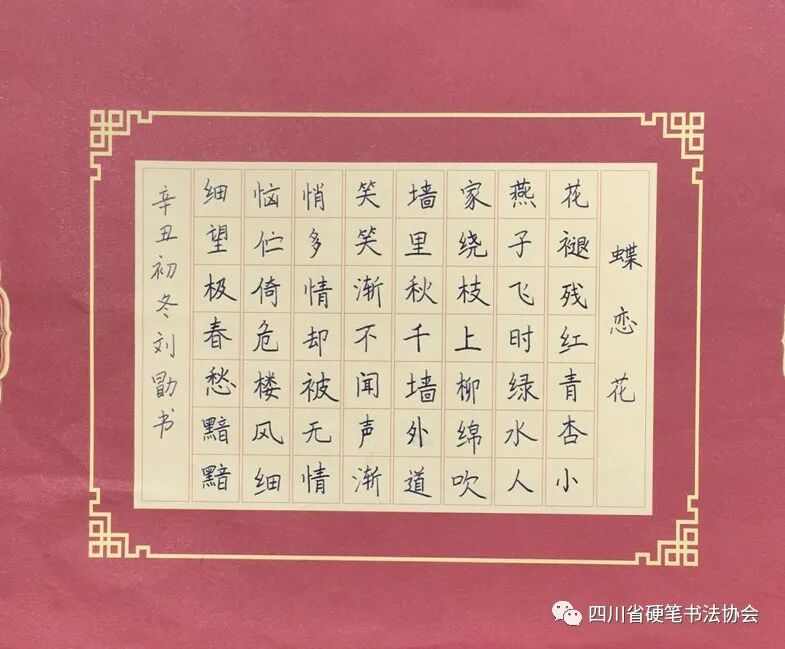 蝶恋花
花褪残红青杏小
燕子飞时绿水人
家绕枝上柳绵吹
墙里秋千墙外道
笑笑渐不闻声渐
悄多情却被无情
恼伫倚危楼风细
细望极春愁黯黯
辛丑初冬刘勖书
四川省硬笔书法协会